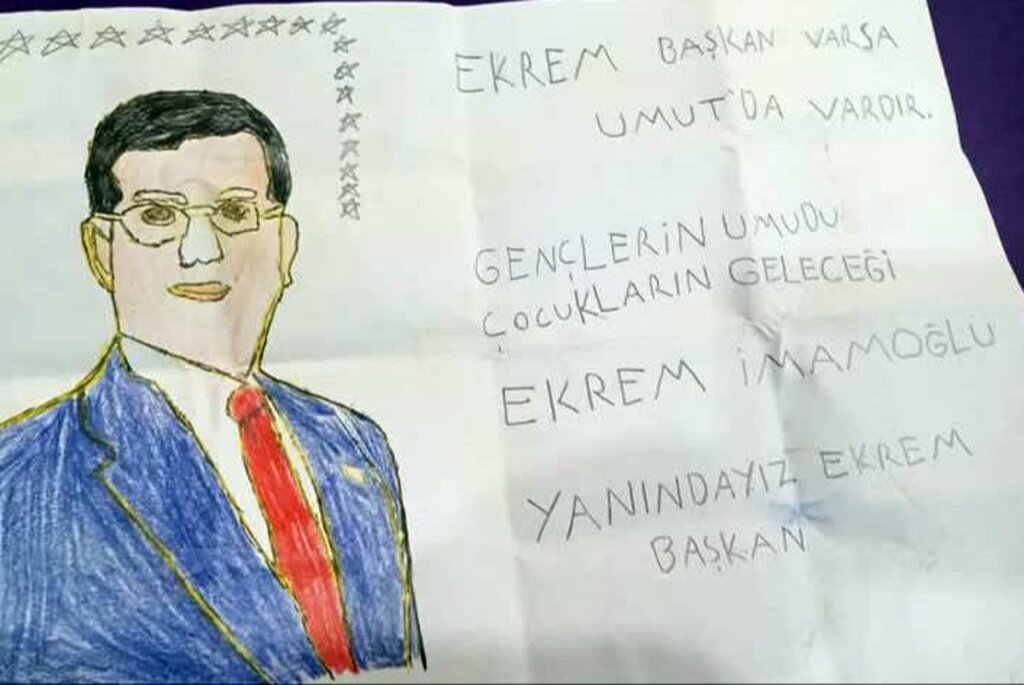 EKREM BAŞKAN VARSA
UMUT'DA VARDIR.
GENÇLERİN UMUDU
ÇOCUKLARIN GELECEĞİ
EKREM İMAMOĞLU
YANINDAYIZ EKREM
BAŞKAN